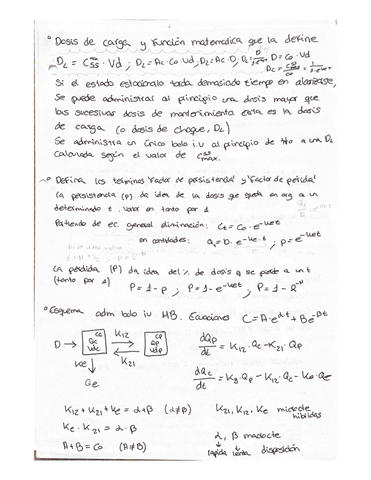 ° Dosis de carga y función matematica que la define
D_L = C^∞_SS · Vd ; D_L = Ac · Co · Vd ; D_L = Ac · D ; D = Co · Vd
Si el estado estacionario tarda demasiado tiempo en alcanzarse,
se puede administrar al principio una dosis mayor que
las sucesivas dosis de mantenimiento esta es la dosis
de carga (o dosis de choque, D_L)
Se administra un único bolo i.v al principio de tto a una D_L
calculada según el valor de C^SS_max.
° Defina los términos "Factor de persistencia" y "Factor de pérdida"
La persistencia (p) da idea de la dosis que queda en org a un
determinado t. Valor en tanto por 1
Partiendo de ec. general eliminación: Ct = Co · e^-ket
en cantidades: Q = D · e^-ke·t ; p = e^-ket
La pérdida (P) da idea del % de dosis q se pierde a un t
(tanto por 1) P = 1 - p ; P = 1 - e^-ket ; P = 1 - 2^-N
° Esquema adm bolo iv MB. Ecuaciones C = A · e^-αt + B e^-βt
D → Cc Qc Vdc K12 K21 Cp Qp Vdp
Ke
Qe
dQp/dt = K12 · Qc - K21 · Qp
dQc/dt = K21 · Qp - K12 · Qc - Ke · Qc
K12 + K21 + Ke = α + β (α ≠ β)
Ke · K21 = α · β
A + B = Co (A ≠ B)
K21, K12, Ke microcte híbridas
α, β macrocte
rápida lenta disposición